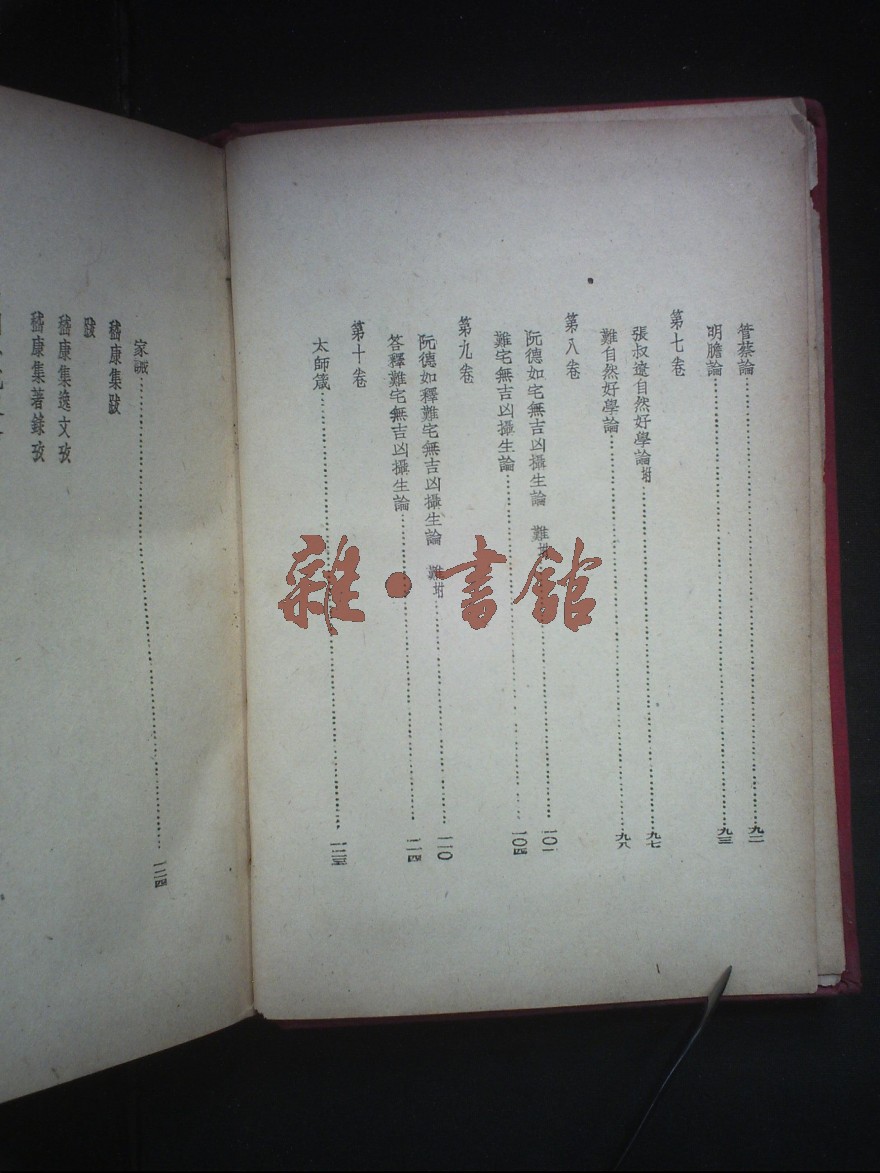 管蔡論……九二
明膽論……九三
第七卷
張叔遼自然好學論附……九七
難自然好學論……九八
第八卷
阮德如宅無吉凶攝生論 難附……一〇一
難宅無吉凶攝生論……一〇四
第九卷
阮德如釋難宅無吉凶攝生論 難附……一一〇
答釋難宅無吉凶攝生論……一一四
第十卷
太師箴……一二三
家誡……一二四
嵇康集跋
跋
嵇康集逸文攷
嵇康集著錄攷
雜·書館